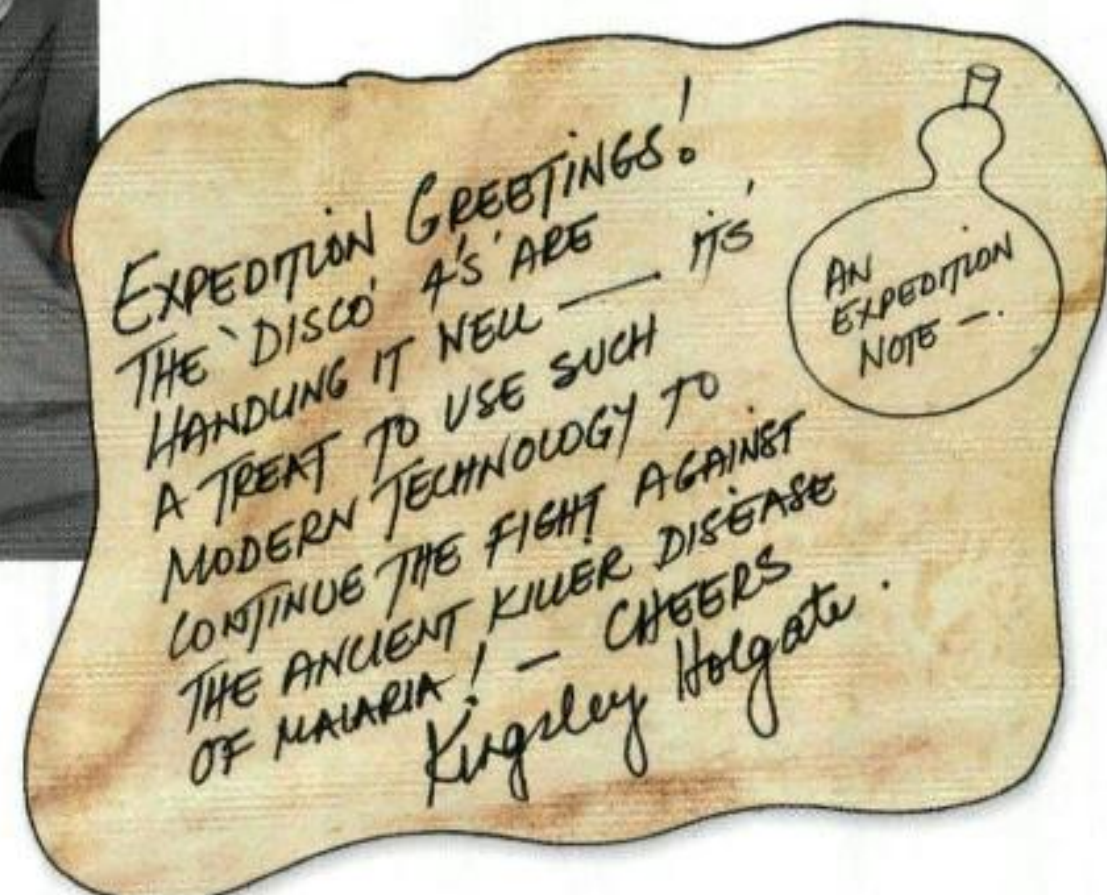 EXPEDITION GREETINGS!
THE 'DISCO' 4'S' ARE
HANDLING IT WELL —— IT'S
A TREAT TO USE SUCH
MODERN TECHNOLOGY TO
CONTINUE THE FIGHT AGAINST
THE ANCIENT KILLER DISEASE
OF MALARIA! — CHEERS
Kingsley Holgate.
AN
EXPEDITION
NOTE —.